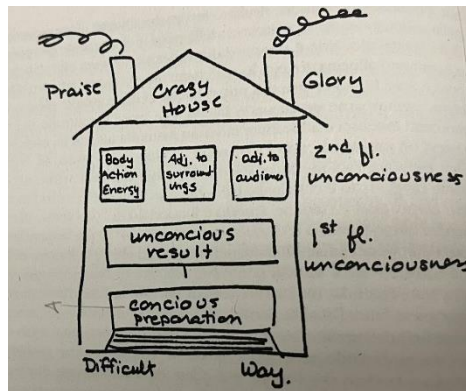 Praise
Crazy
House
Glory
Body
Action
Energy
Adj. to
surround
ings
adj. to
audience
2nd fl.
unconciousness
unconcious
result
1st fl.
unconciousness
concious
preparation
Difficult
Way.